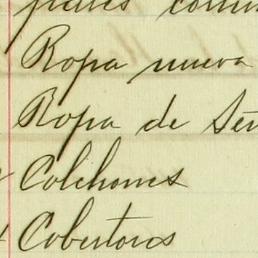 Ropa nueva
Ropa de
Colchones
Cobertores